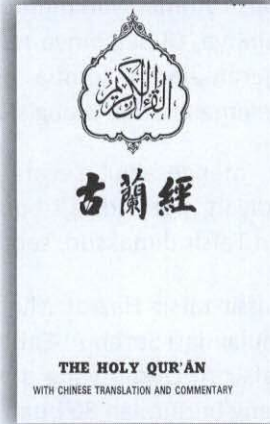 القرآن الكريم
古蘭經
THE HOLY QUR'ĀN
WITH CHINESE TRANSLATION AND COMMENTARY